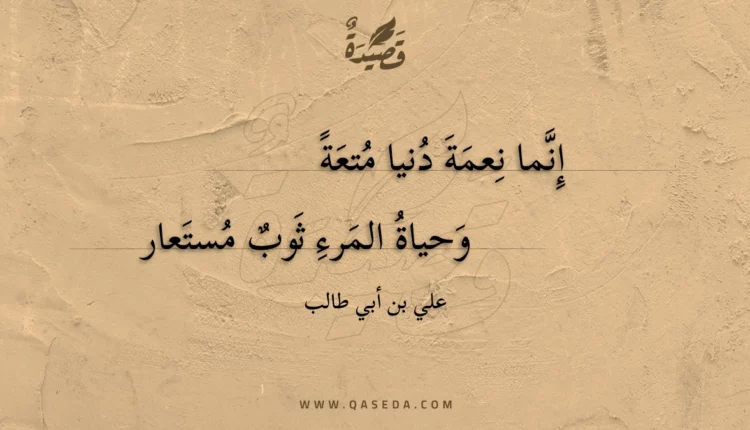 قَصِيدَةٌ
إِنَّما نِعمَةَ دُنيا مُتعَةً
وَحياةُ المَرءِ ثَوبٌ مُستَعار
علي بن أبي طالب
WWW.QASEDA.COM